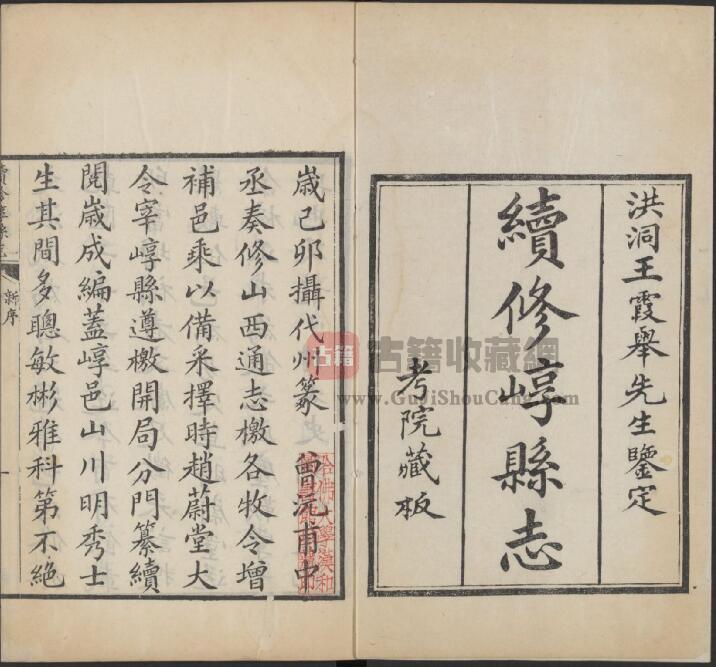 洪洞王霞舉先生鑒定
續修崞縣志
考院藏板
歲己卯攝代州篆曾沅甫中
丞奏修山西通志檄各牧令增
補邑乘以備采擇時趙蔚堂大
令宰崞縣遵檄開局分門纂續
閱歲成編蓋崞邑山川明秀士
生其間多聰敏彬雅科第不絕
新序
古籍
古籍收藏網
www.GuJiShouCang.com